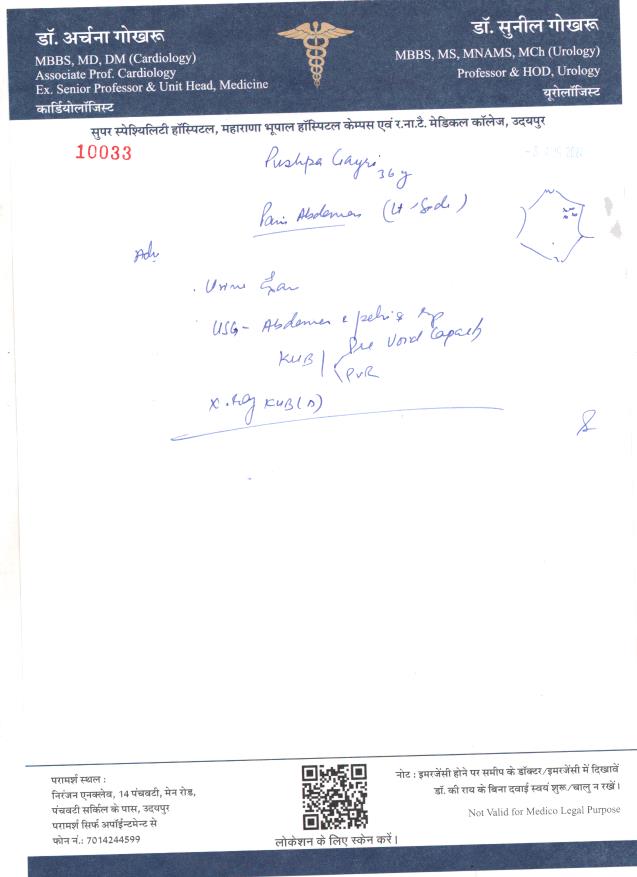 डॉ. अर्चना गोखरू
MBBS, MD, DM (Cardiology)
Associate Prof. Cardiology
Ex. Senior Professor & Unit Head, Medicine
कार्डियोलॉजिस्ट
डॉ. सुनील गोखरू
MBBS, MS, MNAMS, MCh (Urology)
Professor & HOD, Urology
यूरोलॉजिस्ट
सुपर स्पेश्यिलिटी हॉस्पिटल, महाराणा भूपाल हॉस्पिटल केम्पस एवं र.ना.टै. मेडिकल कॉलेज, उदयपुर
10033
Pushpa Gayri
36 y
Pain Abdomen (Lt side)
Adv
Urine Exam
USG - Abdomen & pelvis
KUB Pre Void Capacity
PVR
X-Ray KUB
परामर्श स्थल :
निरंजन एनक्लेव, 14 पंचवटी, मेन रोड,
पंचवटी सर्किल के पास, उदयपुर
परामर्श सिर्फ अपॉईन्टमेन्ट से
फोन नं.: 7014244599
लोकेशन के लिए स्केन करें।
नोट : इमरजेंसी होने पर समीप के डॉक्टर/इमरजेंसी में दिखावें
डॉ. की राय के बिना दवाई स्वयं शुरू/चालु न रखें।
Not Valid for Medico Legal Purpose